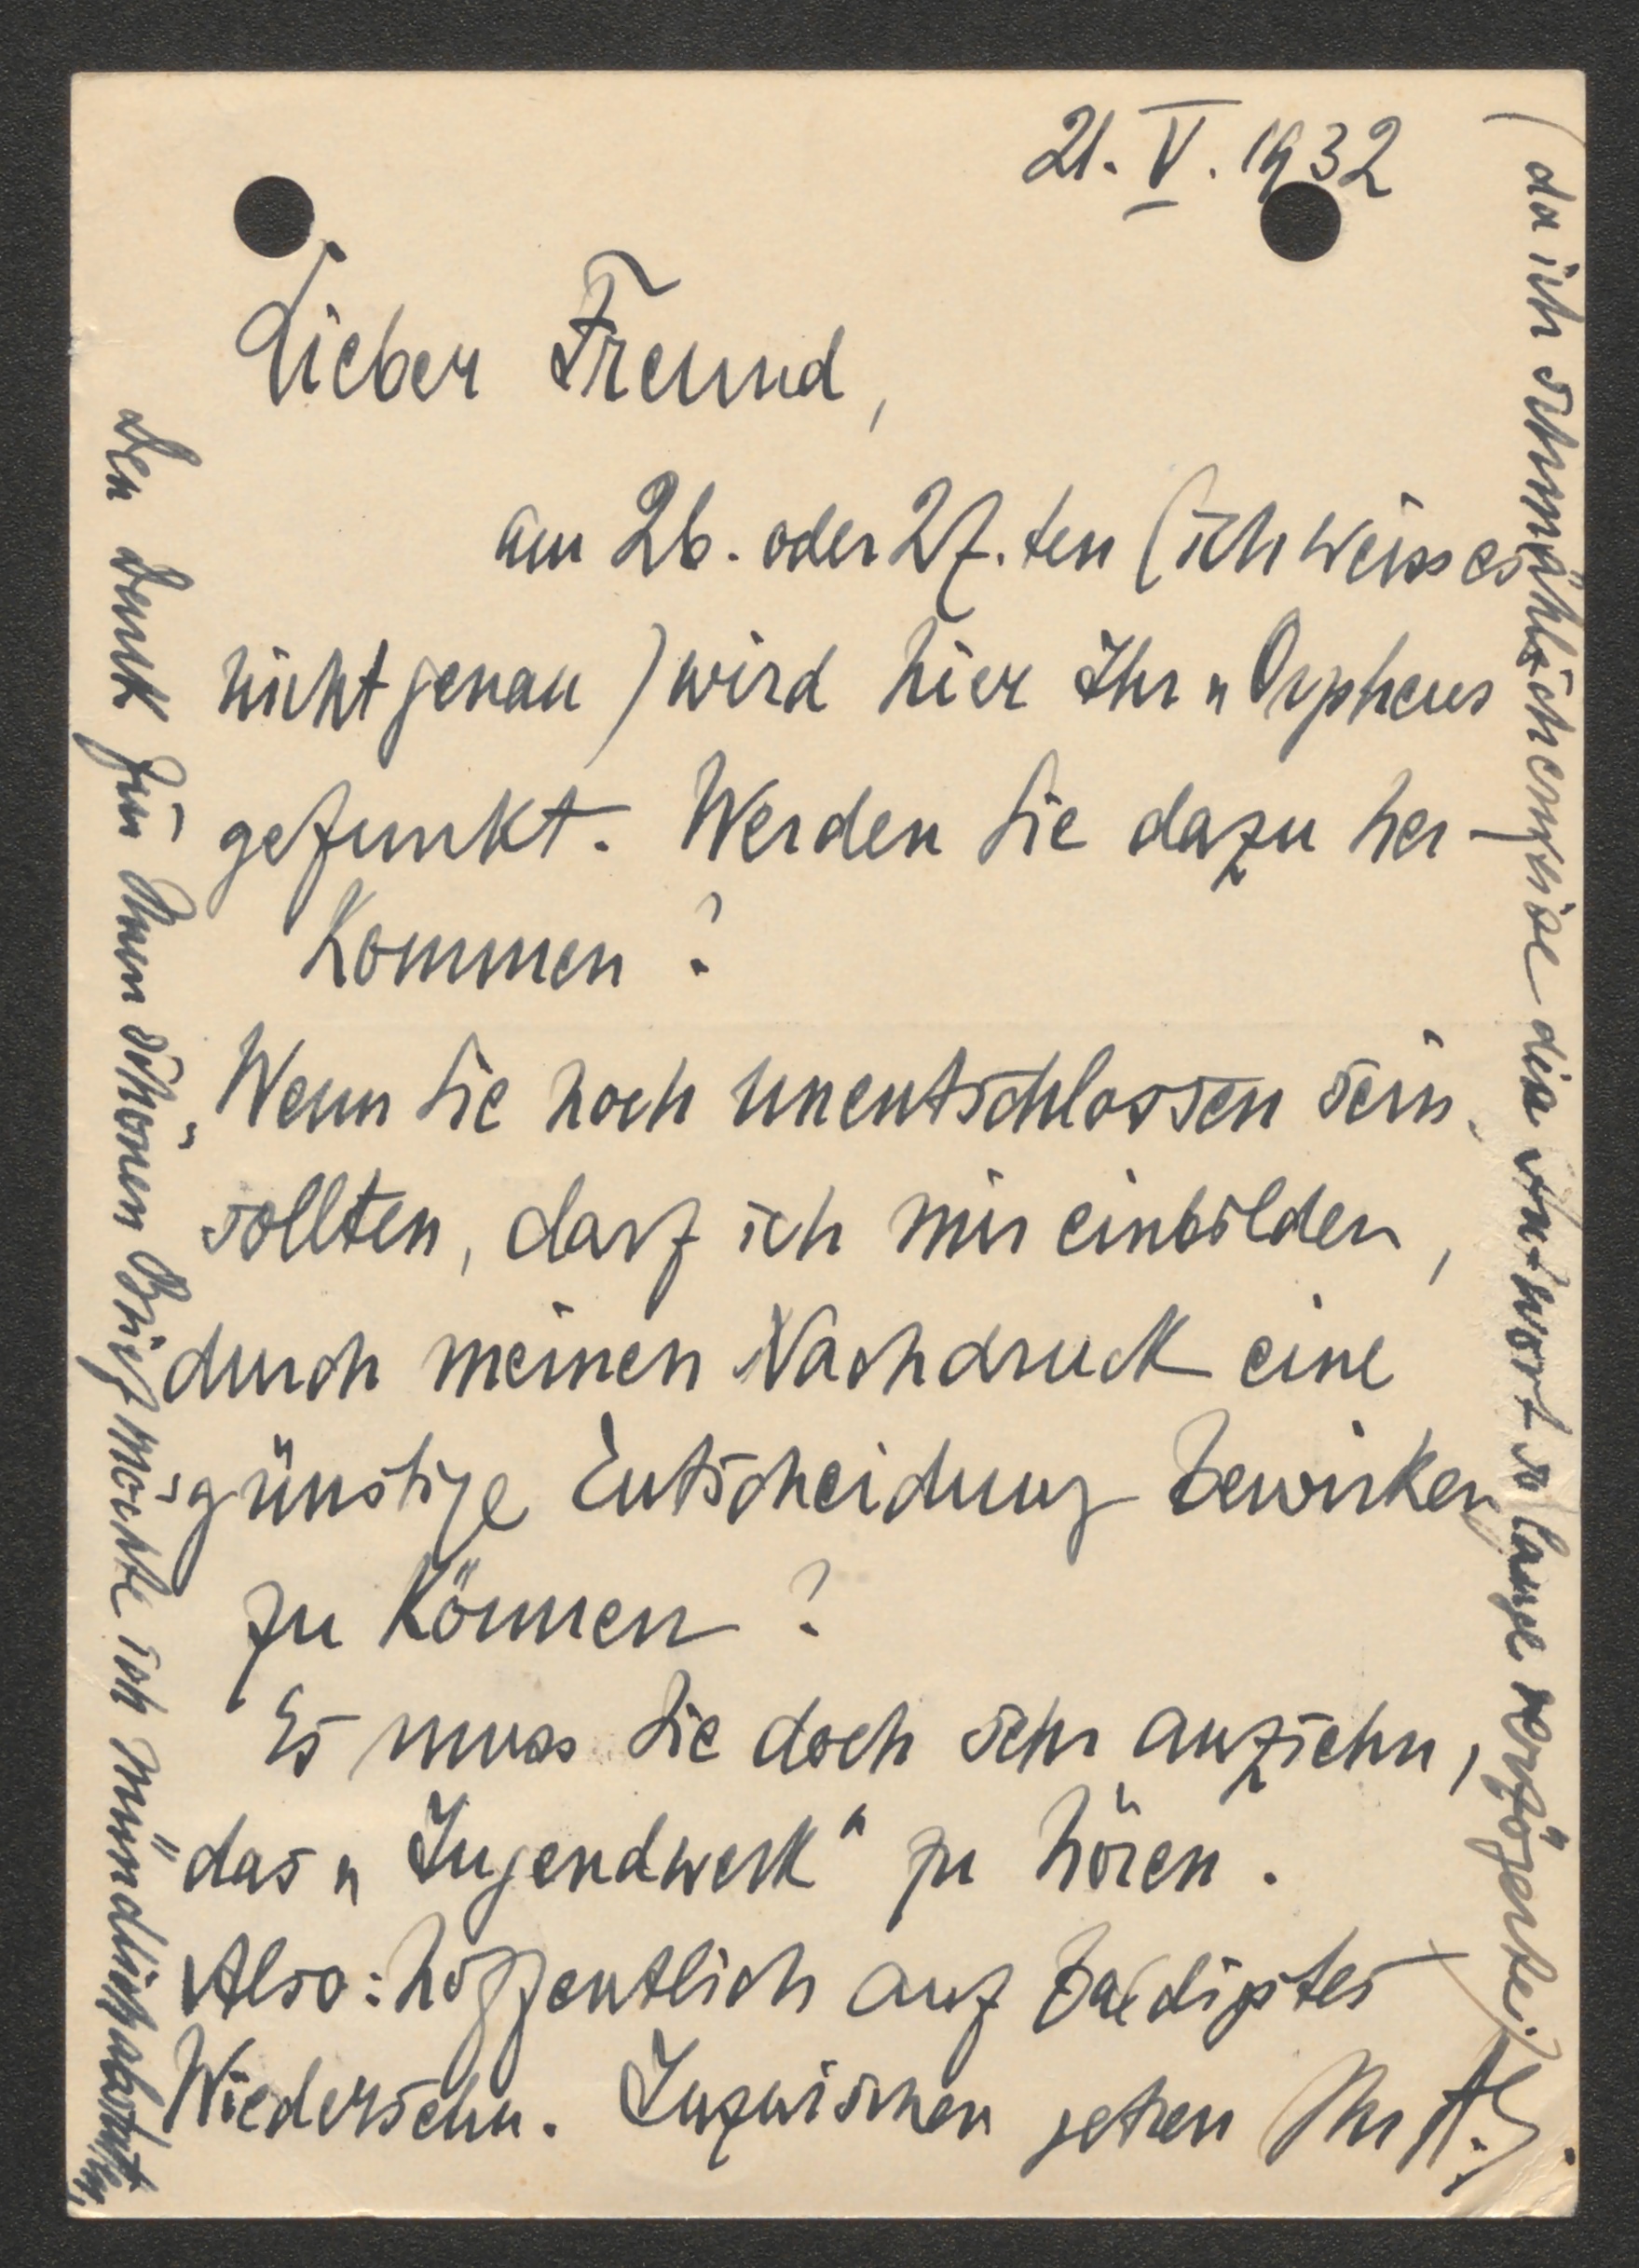 21. V. 1932
Lieber Freund,
am 26. oder 27.ten (ich weiss es
nicht genau) wird hier Ihr „Orpheus
gefunkt. Werden Sie dazu her-
kommen?
Wenn Sie noch unentschlossen sein
sollten, darf ich mir einbilden,
durch meinen Nachdruck eine
günstige Entscheidung bewirken
zu können?
Es muss Sie doch sehr anziehn,
das „Jugendwerk“ zu hören.
Also: hoffentlich auf baldigstes
Wiedersehn. Inzwischen getreu Ihr AS.
Den Dank für Ihren schönen Brief möchte ich mündlich abstatten,
(da ich schmählicherweise die Antwort so lange verzögerte)!